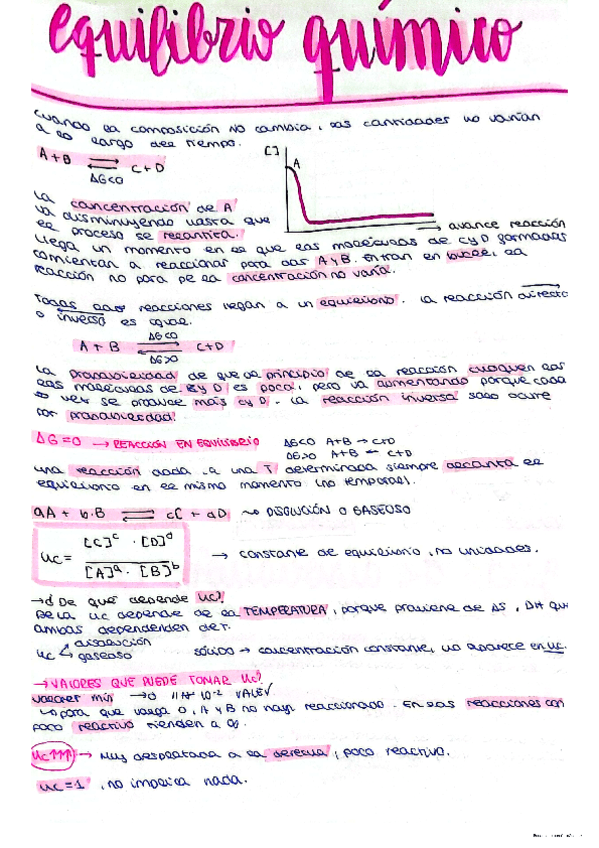 equilibrio químico
Cuando la composición no cambia, las cantidades no varían
a lo largo del tiempo.
A+B ⇌ C+D
ΔG<0
[ ]
A
avance reacción
La concentración de A
va disminuyendo hasta que
el proceso se
llega un momento en el que las moléculas de C y D formadas
comienzan a reaccionar para dar A y B. Entran en bucle, la
reacción no para pe la concentración no varía.
Todas las reacciones llegan a un equilibrio. La reacción directa
o inversa es igual.
ΔG<0
A + B ⇌ C+D
ΔG>0
La probabilidad de que al principio de la reacción choquen las
las moléculas de C y D es poca, pero va aumentando porque cada
vez se produce más C y D. La reacción inversa solo ocurre
por probabilidad.
ΔG=0 → REACCIÓN EN EQUILIBRIO ΔG<0 A+B → C+D
ΔG>0 A+B ← C+D
una reacción dada, a una T determinada siempre alcanza el
equilibrio en el mismo momento (no temporal).
aA + b·B ⇌ cC + dD ↝ DISOLUCIÓN O GASEOSO
Kc = [C]ᶜ · [D]ᵈ / [A]ᵃ · [B]ᵇ → constante de equilibrio, no unidades.
→ ¿ De qué depende Kc?
De la Kc depende de la TEMPERATURA, porque proviene de ΔS, ΔH que
ambas dependenden de T.
Kc < disolución
gaseoso
sólido → concentración constante, no aparece en Kc.
→ VALORES QUE PUEDE TOMAR Kc?
valor mín → 0
↳ para que valga 0, A y B no hayn reaccionado. En las reacciones con
poco reactivo tienden a 0.
Kc↑↑↑ → Muy desplazada a la derecha, poco reactivo.
Kc=1, no implica nada.